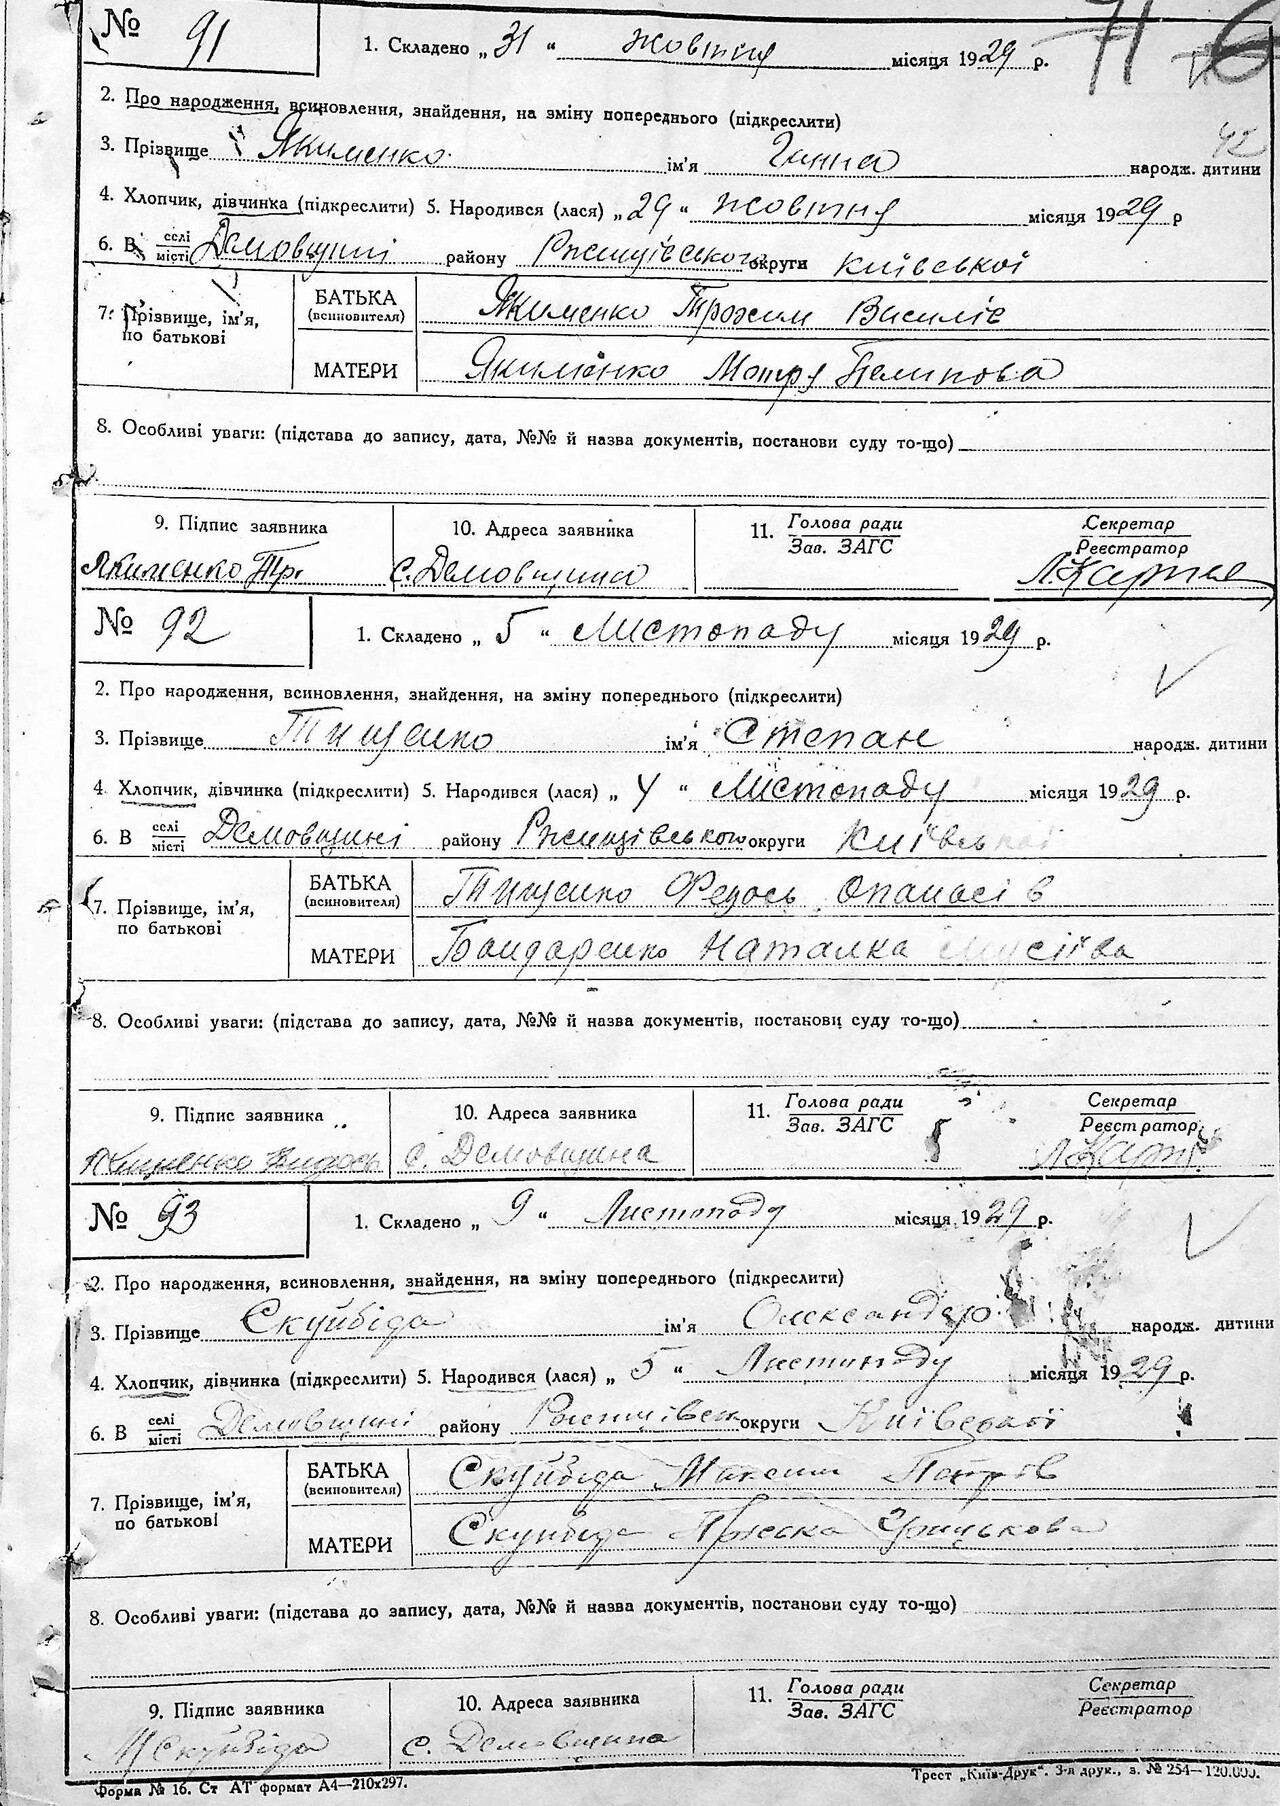 № 91
1. Складено „ 31 “ жовтня місяця 1929 р.
71
42
2. Про народження, всиновлення, знайдення, на зміну попереднього (підкреслити)
3. Прізвище Якименко ім'я Ганна народж. дитини
4. Хлопчик, дівчинка (підкреслити) 5. Народився (лася) „ 29 “ жовтня місяця 1929 р
6. В селі/місті Демовщині району Ржищівського округи Київської
7. Прізвище, ім'я, по батькові
БАТЬКА (всиновителя) Якименко Трохим Василів
МАТЕРИ Якименко Мотря Пилипова
8. Особливі уваги: (підстава до запису, дата, №№ й назва документів, постанови суду то-що)
9. Підпис заявника 10. Адреса заявника 11. Голова ради / Зав. ЗАГС Секретар / Реєстратор
Якименко Тр. с. Демовщина
№ 92
1. Складено „ 5 “ Листопаду місяця 1929 р.
2. Про народження, всиновлення, знайдення, на зміну попереднього (підкреслити)
3. Прізвище Тищенко ім'я Степан народж. дитини
4. Хлопчик, дівчинка (підкреслити) 5. Народився (лася) „ 4 “ Листопаду місяця 1929 р.
6. В селі/місті Демовщині району Ржищівського округи Київської
7. Прізвище, ім'я, по батькові
БАТЬКА (всиновителя) Тищенко Федось Опанасів
МАТЕРИ Бондаренко Наталка Мусіїва
8. Особливі уваги: (підстава до запису, дата, №№ й назва документів, постанови суду то-що)
9. Підпис заявника 10. Адреса заявника 11. Голова ради / Зав. ЗАГС Секретар / Реєстратор
с. Демовщина
№ 93
1. Складено „ 9 “ Листопаду місяця 1929 р.
2. Про народження, всиновлення, знайдення, на зміну попереднього (підкреслити)
3. Прізвище Скуйбіда ім'я Олександер народж. дитини
4. Хлопчик, дівчинка (підкреслити) 5. Народився (лася) „ 5 “ Листопаду місяця 1929 р.
6. В селі/місті Демовщині району Ржищівськ округи Київської
7. Прізвище, ім'я, по батькові
БАТЬКА (всиновителя) Скуйбіда Максим Петрів
МАТЕРИ Скуйбіда Пріська Грицькова
8. Особливі уваги: (підстава до запису, дата, №№ й назва документів, постанови суду то-що)
9. Підпис заявника 10. Адреса заявника 11. Голова ради / Зав. ЗАГС Секретар / Реєстратор
М Скуйбіда с. Демовщина
Форма № 16. Ст АТ формат А4—210х297.
Трест „Київ-Друк“. 3-я друк., з. № 254—120.000.